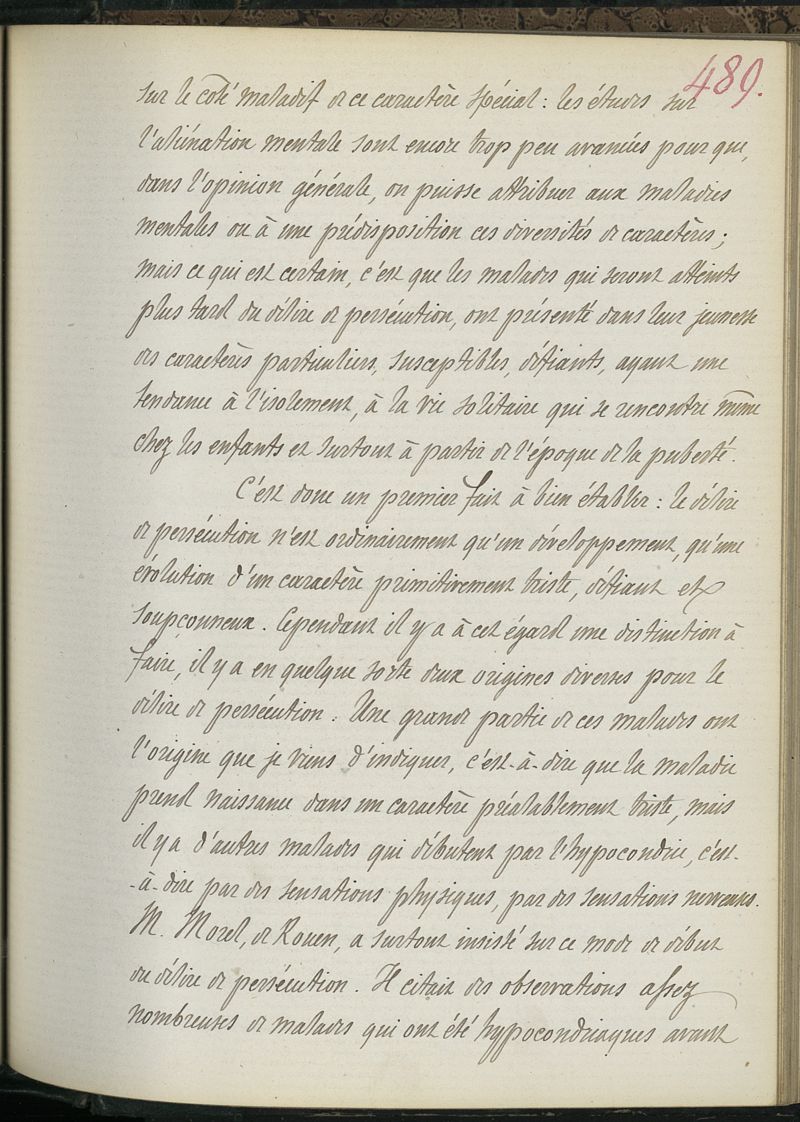 489.
sur le côté maladif de ce caractère spécial : les études sur
l'aliénation mentale sont encore trop peu avancées pour que,
dans l'opinion générale, on puisse attribuer aux maladies
mentales ou à une prédisposition ces diversités de caractères ;
mais ce qui est certain, c'est que les malades qui seront atteints
plus tard du délire de persécution, ont présenté dans leur jeunesse
des caractères particuliers, susceptibles, défiants, ayant une
tendance à l'isolement, à la vie solitaire qui se rencontre même
chez les enfants et surtout à partir de l'époque de la puberté.
C'est donc un premier fait à bien établir : le délire
de persécution n'est ordinairement qu'un développement, qu'une
évolution d'un caractère primitivement triste, défiant et
soupçonneux. Cependant il y a à cet égard une distinction à
faire, il y a en quelque sorte deux origines diverses pour le
délire de persécution : Une grande partie de ces malades ont
l'origine que je viens d'indiquer, c'est-à-dire que la maladie
prend naissance dans un caractère préalablement triste, mais
il y a d'autres malades qui débutent par l'hypocondrie, c'est-
-à-dire par des sensations physiques, par des sensations nerveuses.
M. Morel, de Rouen, a surtout insisté sur ce mode de début
du délire de persécution. Il citait des observations assez
nombreuses de malades qui ont été hypocondriaques avant